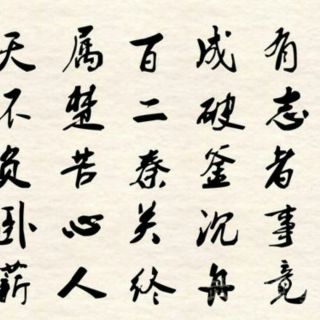 有志者事竟
成破釜沉舟
百二秦关终
属楚苦心人
天不负卧薪